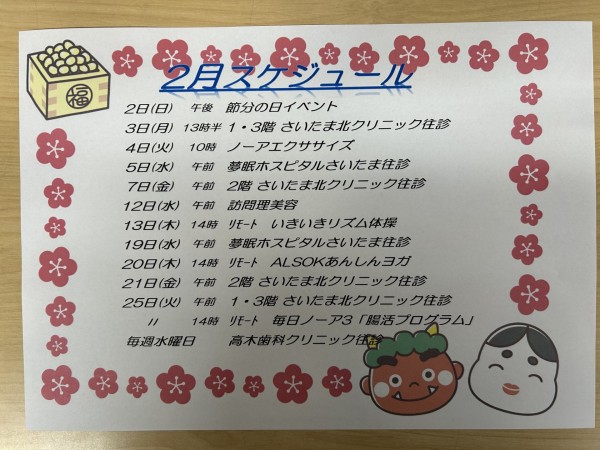 福
2月スケジュール
2日(日) 午後 節分の日イベント
3日(月) 13時半 1・3階 さいたま北クリニック往診
4日(火) 10時 ノーアエクササイズ
5日(水) 午前 夢眠ホスピタルさいたま往診
7日(金) 午前 2階 さいたま北クリニック往診
12日(水) 午前 訪問理美容
13日(木) 14時 ﾘﾓｰﾄ いきいきリズム体操
19日(水) 午前 夢眠ホスピタルさいたま往診
20日(木) 14時 ﾘﾓｰﾄ ALSOKあんしんヨガ
21日(金) 午前 2階 さいたま北クリニック往診
25日(火) 午前 1・3階 さいたま北クリニック往診
〃 14時 ﾘﾓｰﾄ 毎日ノーア3「腸活プログラム」
毎週水曜日 高木歯科クリニック往診